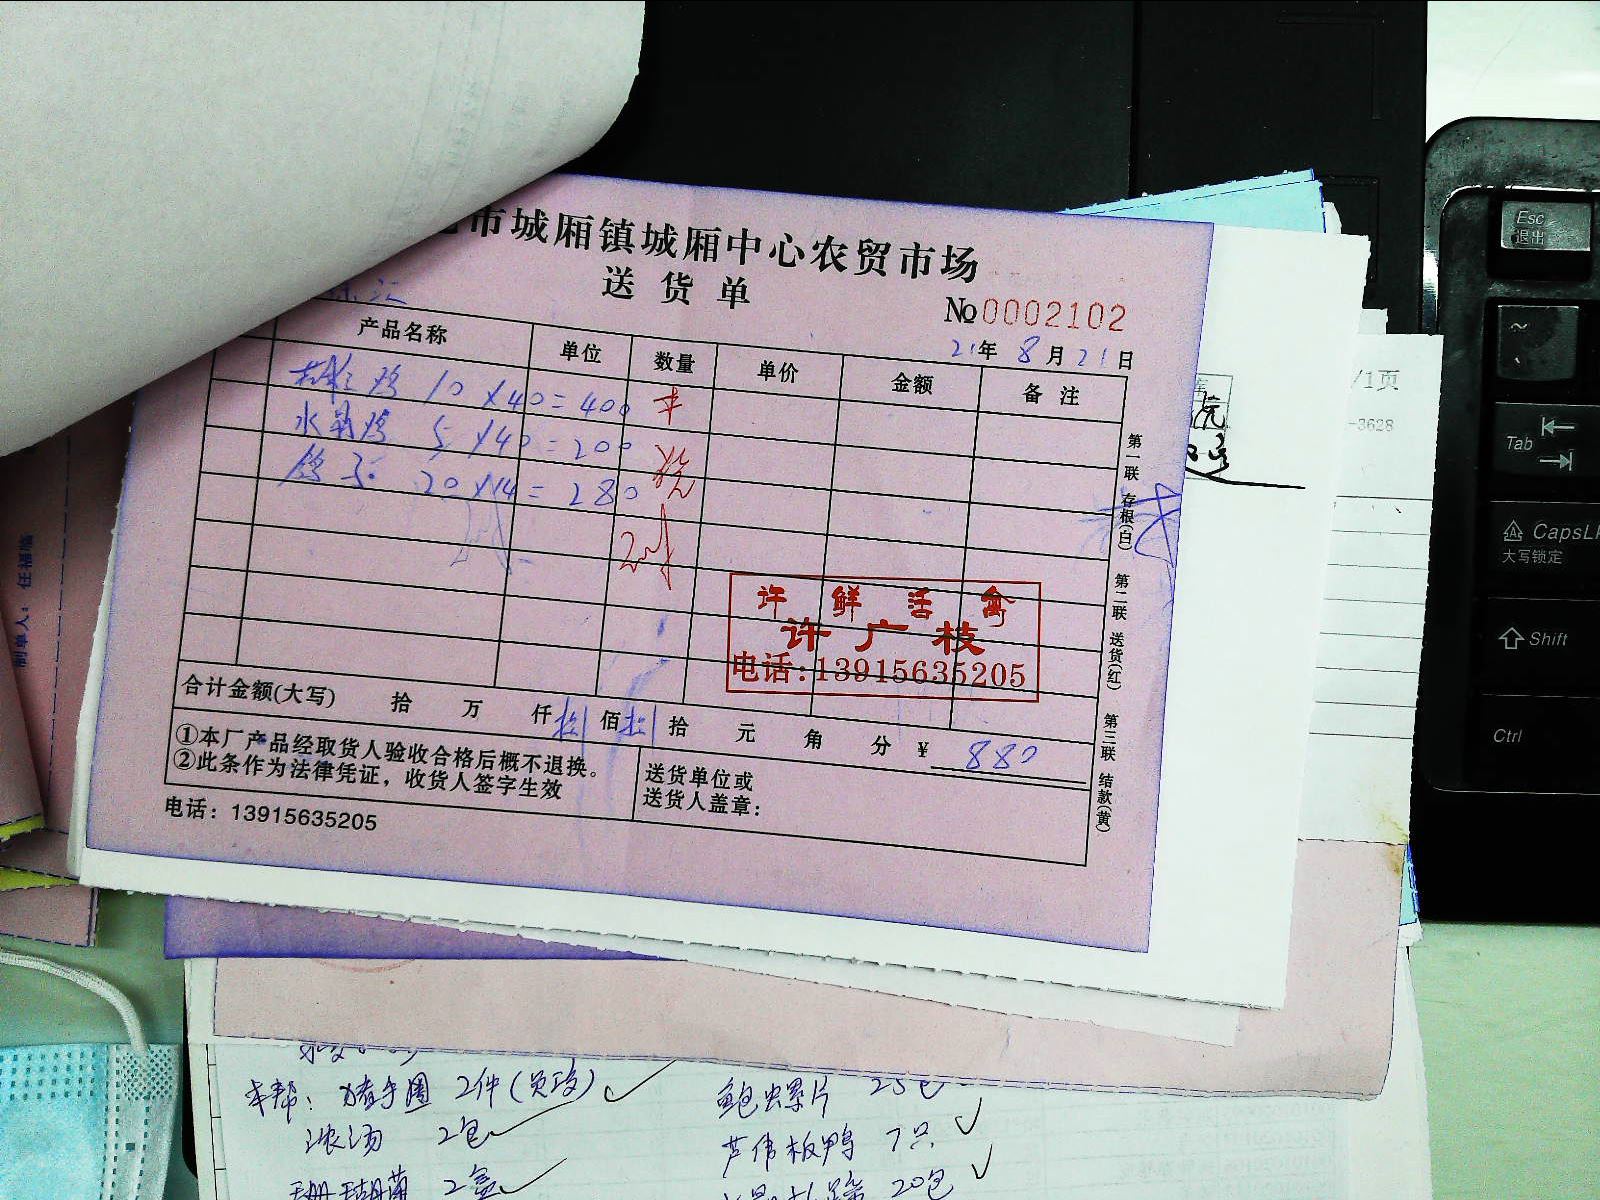 市城厢镇城厢中心农贸市场
送货单
№0002102
21年 8月 21日
产品名称 单位 数量 单价 金额 备注
鸡 10×40=400
水晶鸡 5×40=200
鸽子 20×14=280
许 鲜 活 禽
许广枝
电话:13915635205
合计金额(大写) 拾 万 仟 佰 拾 元 角 分 ¥ 880
①本厂产品经取货人验收合格后概不退换。
②此条作为法律凭证，收货人签字生效
送货单位或
送货人盖章:
电话: 13915635205
第一联 存根(白) 第二联 送货(红) 第三联 结款(黄)
制单人: 任福临
/1页
-3628
Esc
退出
~
Tab
CapsL
大写锁定
Shift
Ctrl
本帮: 猪手圈 2件
浓汤 2包
珊瑚菌 2盒
鲍螺片 25包
芦伟板鸭 7只
20包